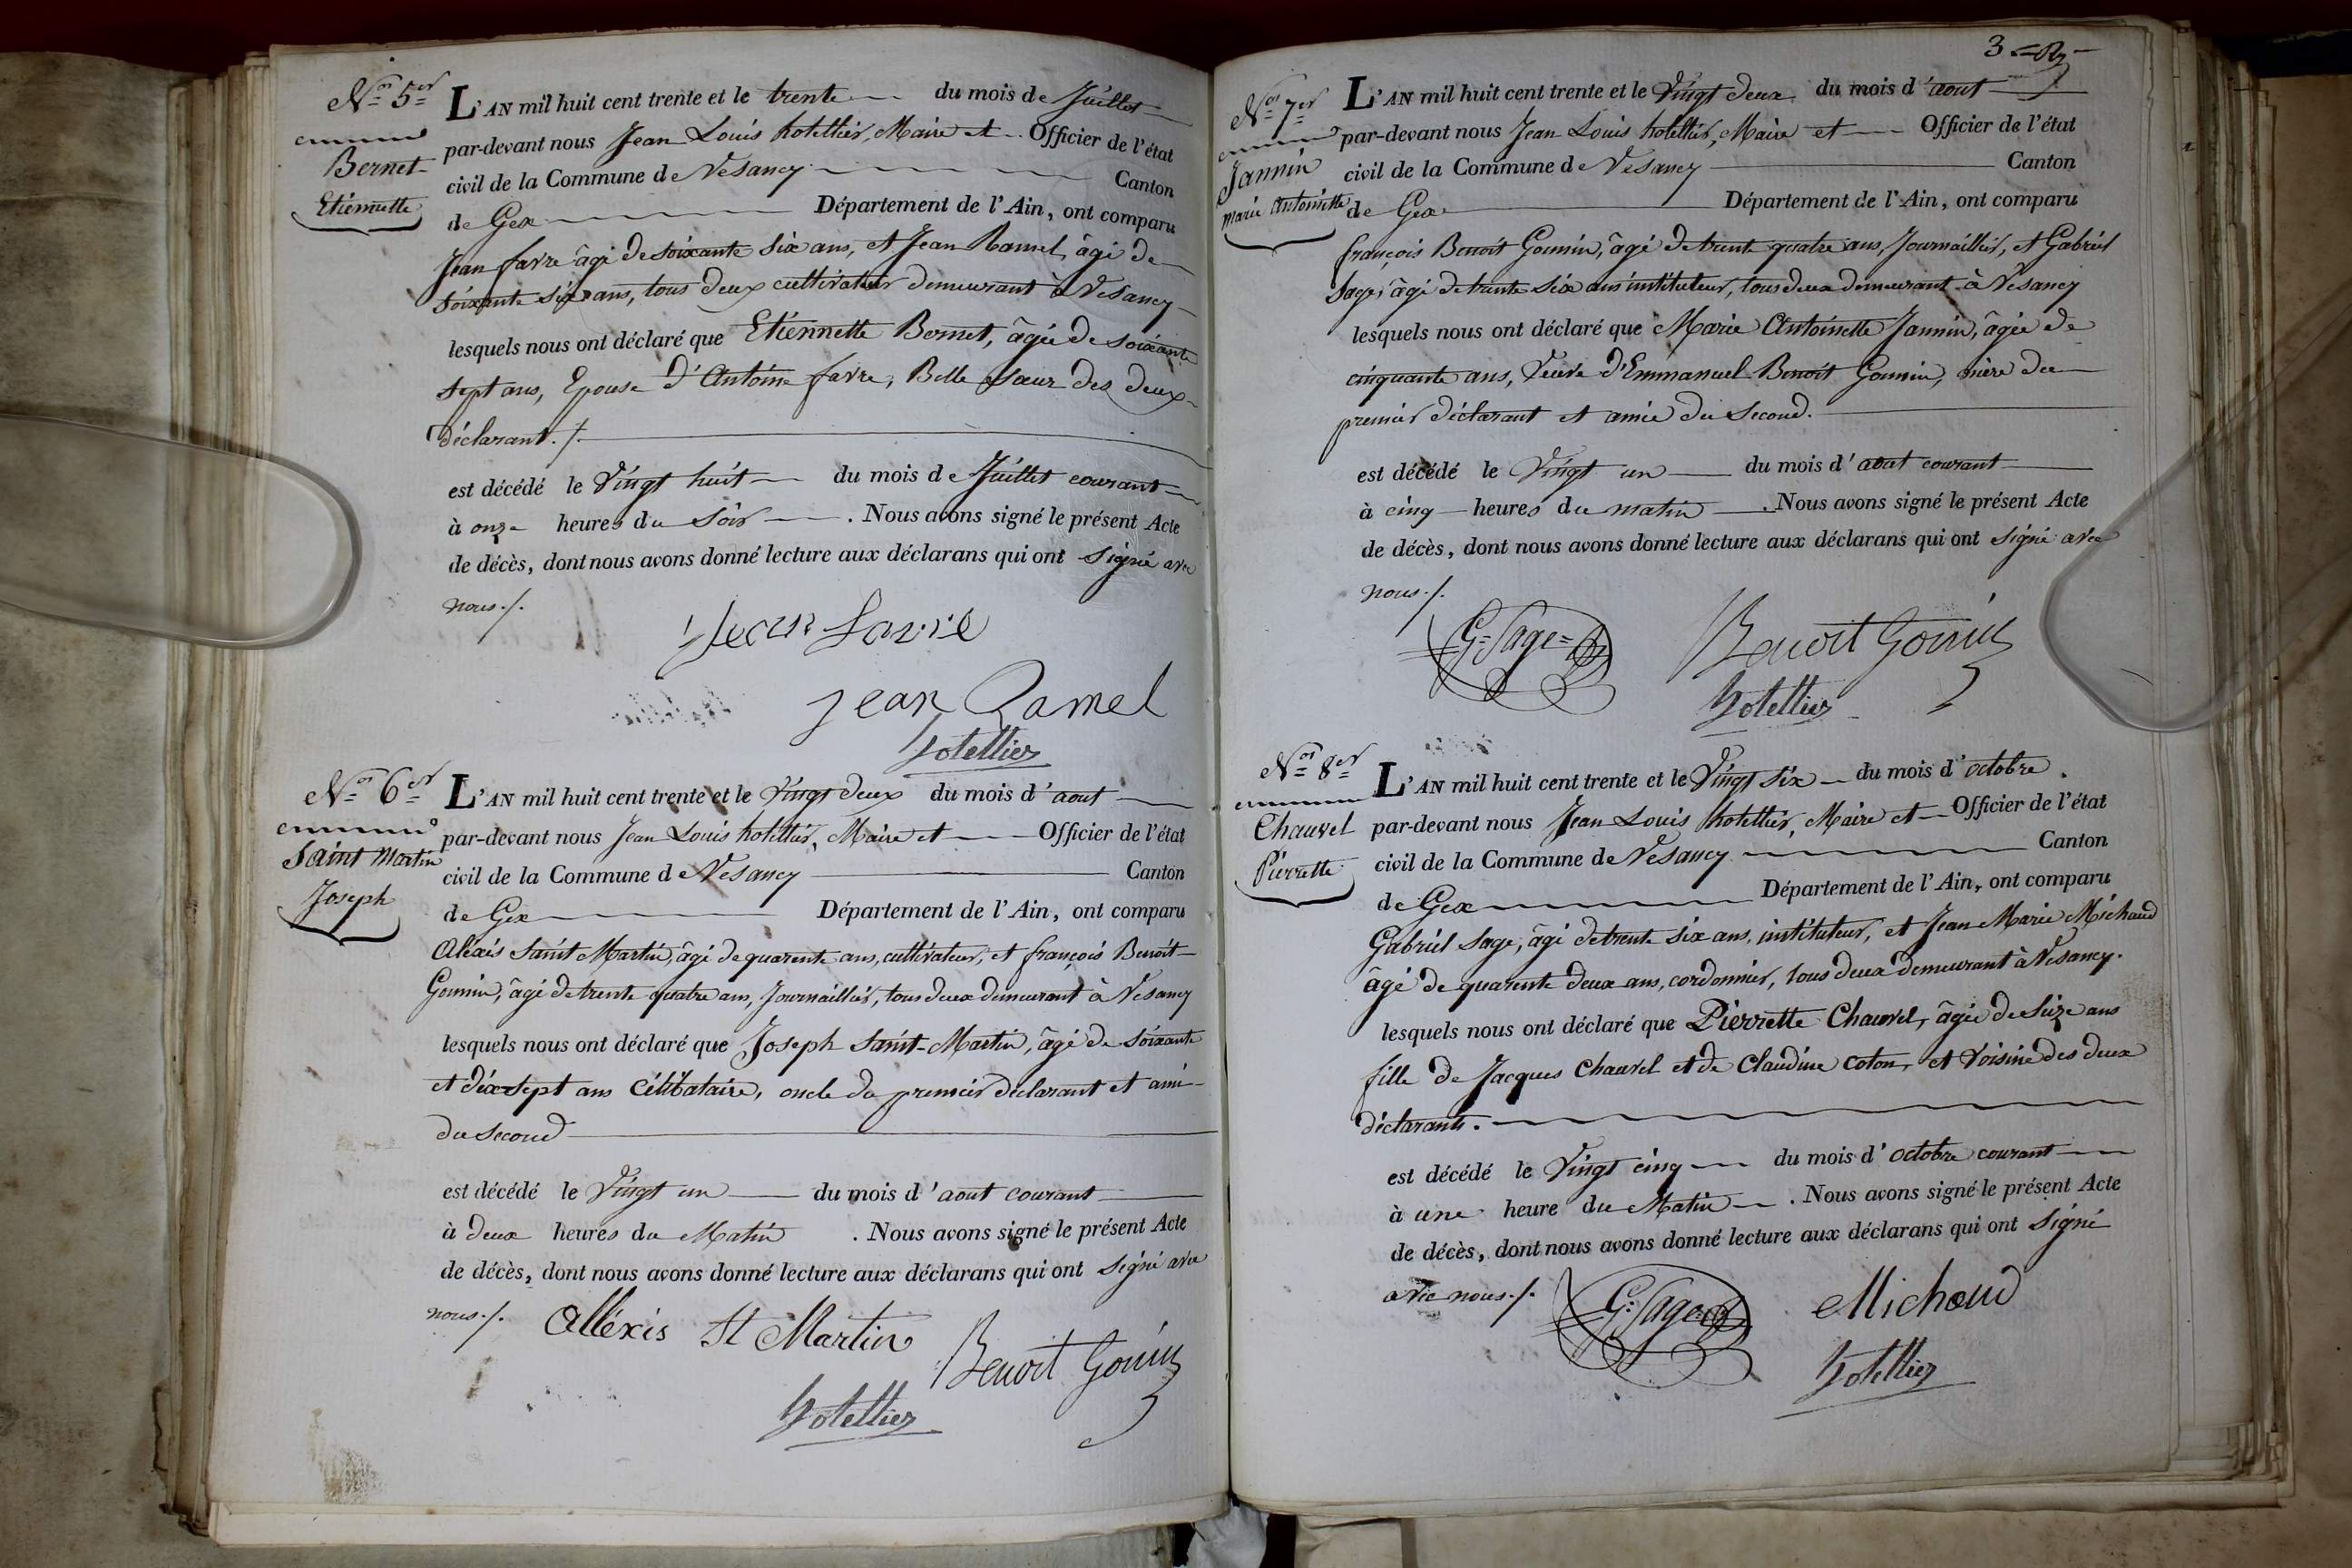 N.° 5.er
Bernet
Etiennette
L'AN mil huit cent trente et le trente du mois de Juillet
par-devant nous Jean Louis hotellier, Maire et Officier de l'état
civil de la Commune de Vesancy Canton
de Gex Département de l'Ain, ont comparu
Jean favre âgé de soixante six ans, et Jean Ramel, âgé de
soixante six ans, tous deux cultivateur demeurant à Vesancy
lesquels nous ont déclaré que Etiennette Bernet, âgée de soixante
sept ans, Epouse d'Antoine favre, Belle sœur des deux
déclarant ./.
est décédé le Vingt huit du mois de Juillet courant
à onze heures du soir . Nous avons signé le présent Acte
de décès, dont nous avons donné lecture aux déclarans qui ont signé avec
nous ./.
Jean favre
jean Ramel
hotellier
N.° 6.er
Saint Martin
Joseph
L'AN mil huit cent trente et le Vingt deux du mois d'aout
par-devant nous Jean Louis hotellier, Maire et Officier de l'état
civil de la Commune de Vesancy Canton
de Gex Département de l'Ain, ont comparu
Alexis Saint Martin, âgé de quarente ans, cultivateur, et françois Benoit
Gounin, âgé de trente quatre ans, Journaillier, tous deux demeurant à Vesancy
lesquels nous ont déclaré que Joseph Saint-Martin, âgé de soixante
et dix-sept ans Célibataire, oncle du premier déclarant et ami
du second
est décédé le Vingt un du mois d'aout courant
à deux heures du Matin . Nous avons signé le présent Acte
de décès, dont nous avons donné lecture aux déclarans qui ont signé avec
nous ./. Alléxis St Martin
Benoit Gounin
hotellier
3
N.° 7.er
Jannin
marie Antoinette
L'AN mil huit cent trente et le Vingt deux du mois d'aout
par-devant nous Jean Louis hotellier, Maire et Officier de l'état
civil de la Commune de Vesancy Canton
de Gex Département de l'Ain, ont comparu
françois Benoit Gounin, âgé de trente quatre ans, Journaillier, et Gabriel
Sage, âgé de trente six ans instituteur, tous deux demeurant à Vesancy
lesquels nous ont déclaré que Marie Antoinette Jannin, âgée de
cinquante ans, Veuve d'Emmanuel Benoit Gounin, mère du
premier déclarant et amie du second.
est décédé le Vingt un du mois d'aout courant
à cinq heures du matin . Nous avons signé le présent Acte
de décès, dont nous avons donné lecture aux déclarans qui ont signé avec
nous ./.
G. Sage Benoit Gounin
hotellier
N.° 8.er
Chauvel
Pierrette
L'AN mil huit cent trente et le Vingt six du mois d'octobre
par-devant nous Jean Louis hotellier, Maire et Officier de l'état
civil de la Commune de Vesancy Canton
de Gex Département de l'Ain, ont comparu
Gabriel Sage, âgé de trente six ans, instituteur, et Jean Marie Michaud
âgé de quarente deux ans, cordonnier, tous deux demeurant à Vesancy.
lesquels nous ont déclaré que Pierrette Chauvel, âgée de seize ans
fille de Jacques Chauvel et de Claudine Coton, et Voisine des deux
déclarants.
est décédé le Vingt cinq du mois d'octobre courant
à une heure du Matin . Nous avons signé le présent Acte
de décès, dont nous avons donné lecture aux déclarans qui ont signé
avec nous ./. G. Sage Michaud
hotellier